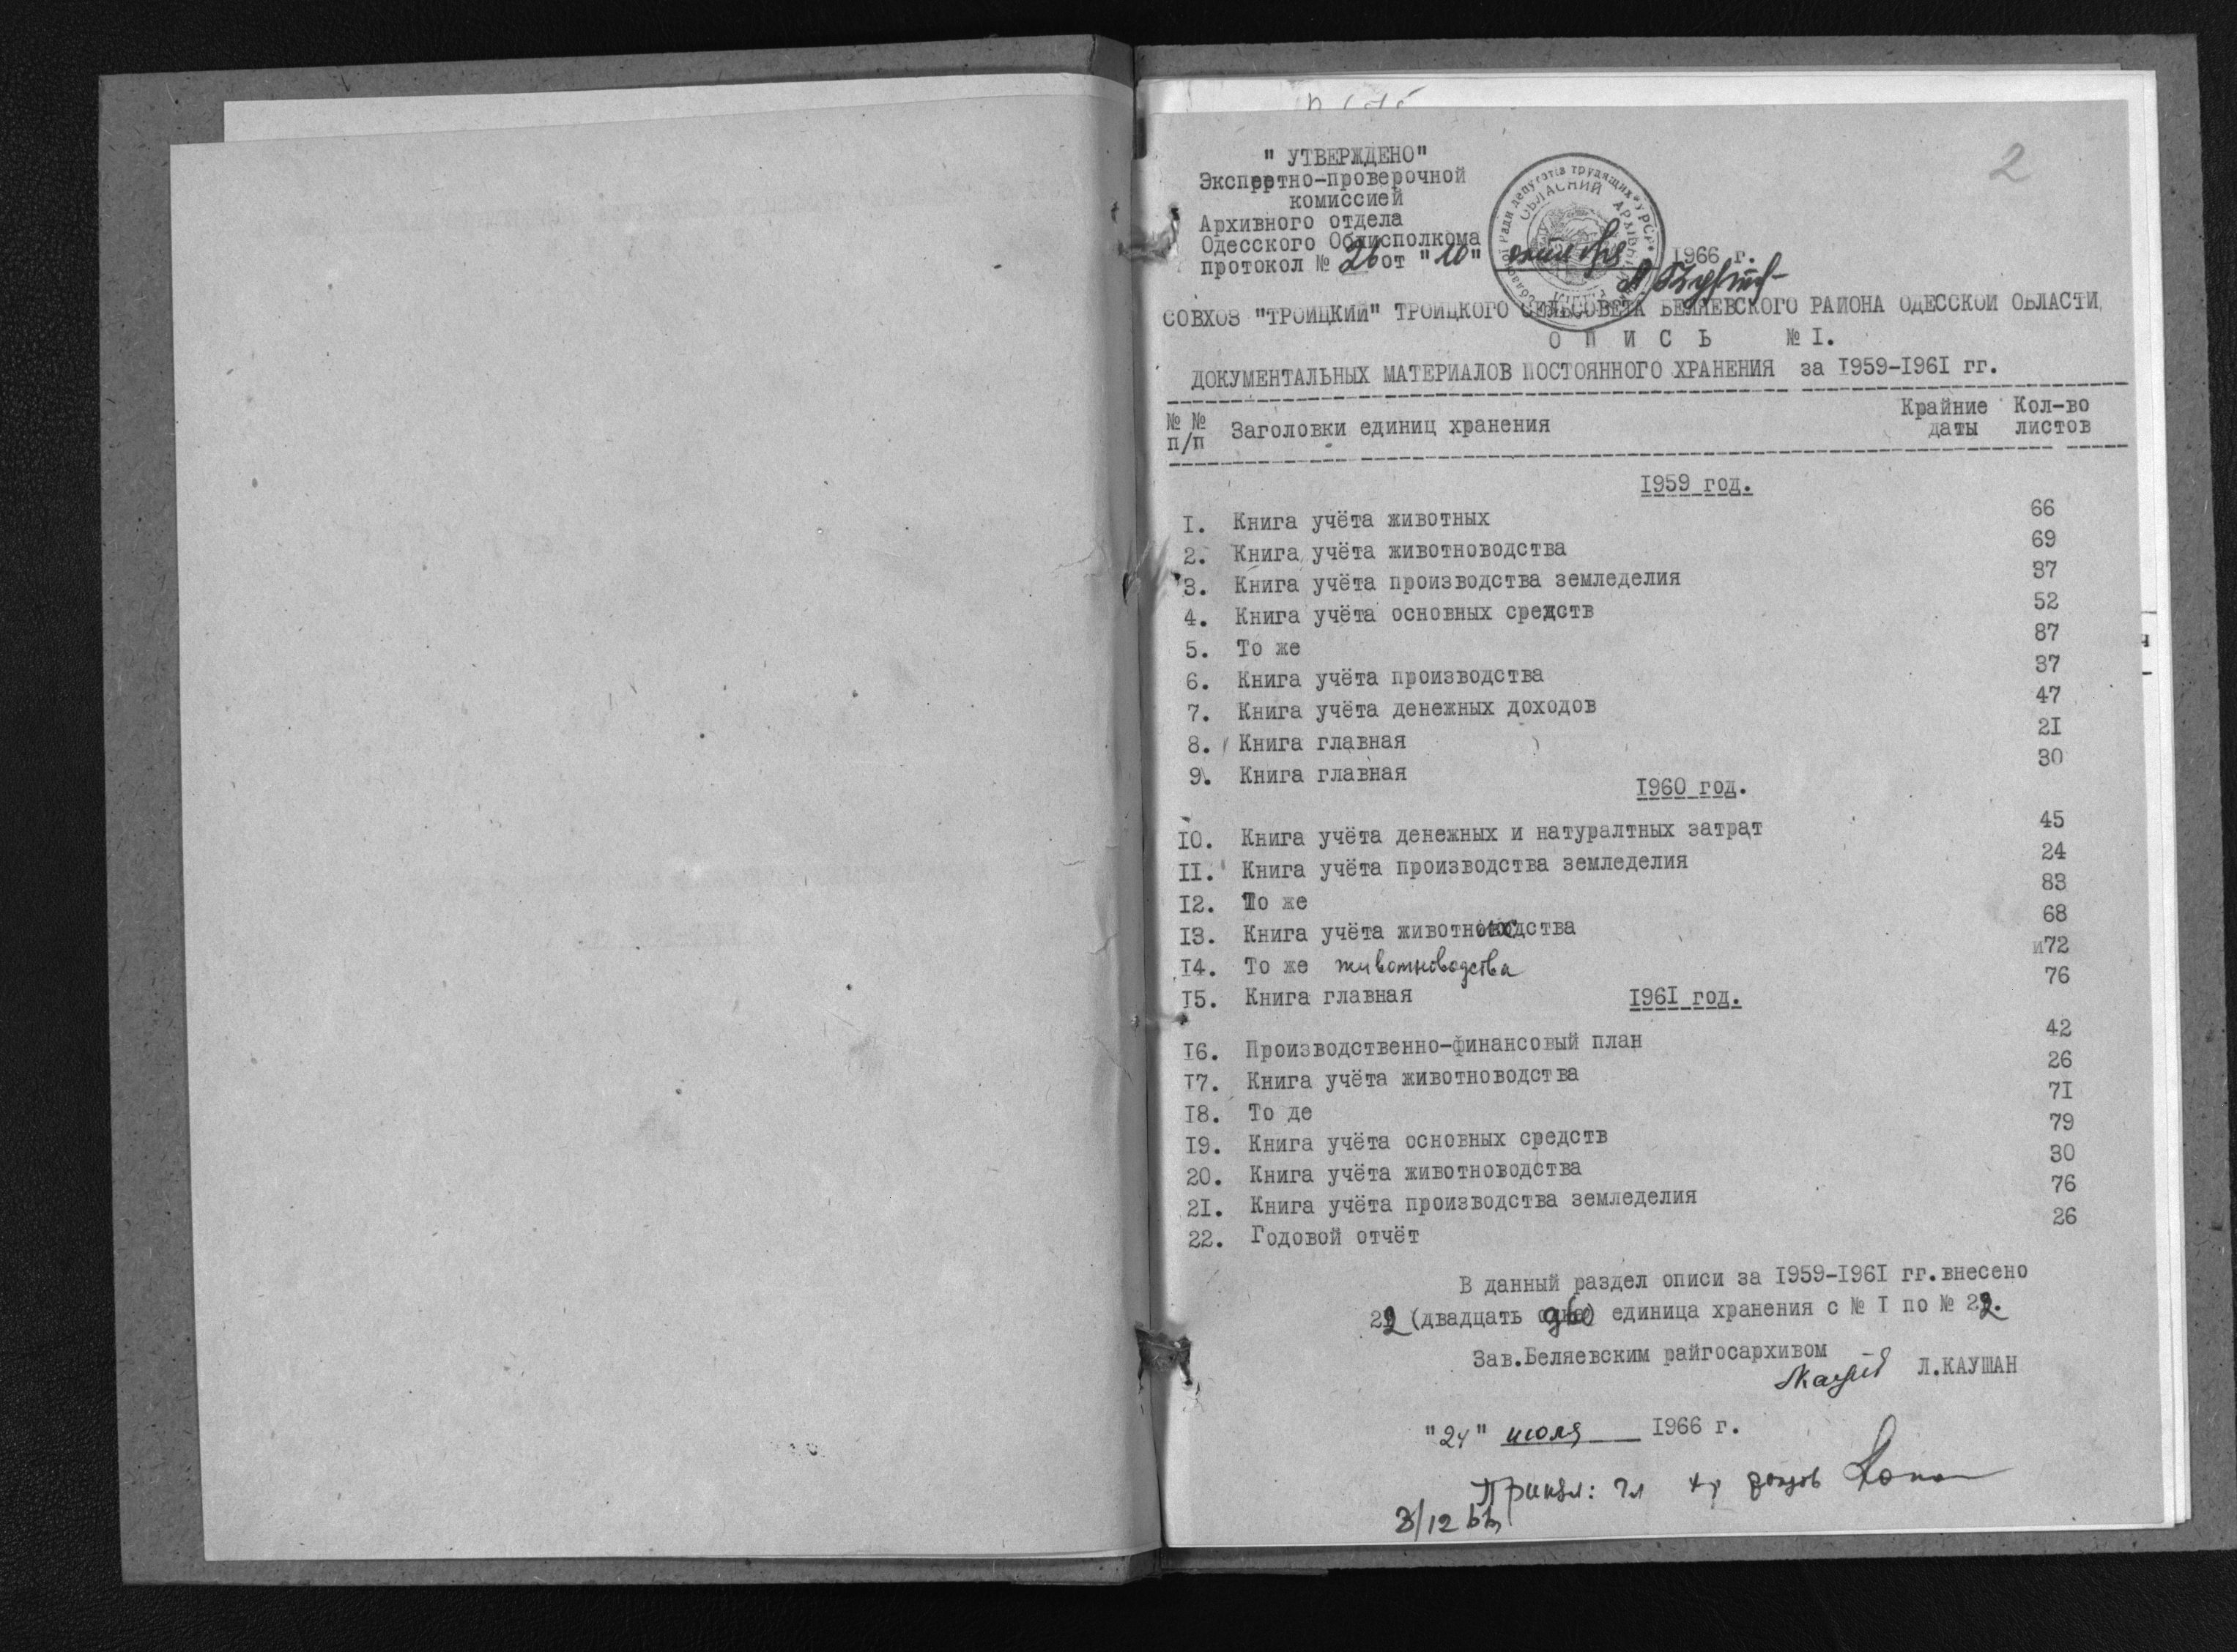 2
" УТВЕРЖДЕНО"
Экспертно-проверочной
комиссией
Архивного отдела
Одесского Облисполкома
протокол № 26 от "10" октября 1966 г.
СОВХОЗ "ТРОИЦКИЙ" ТРОИЦКОГО СЕЛЬСОВЕТА БЕЛЯЕВСКОГО РАЙОНА ОДЕССКОЙ ОБЛАСТИ
О П И С Ь № I.
ДОКУМЕНТАЛЬНЫХ МАТЕРИАЛОВ ПОСТОЯННОГО ХРАНЕНИЯ за I959-I96I гг.
№ № п/п Заголовки единиц хранения Крайние даты Кол-во листов
I959 год.
I. Книга учёта животных 66
2. Книга учёта животноводства 69
3. Книга учёта производства земледелия 37
4. Книга учёта основных средств 52
5. То же 87
6. Книга учёта производства 37
7. Книга учёта денежных доходов 47
8. Книга главная 2I
9. Книга главная 30
I960 год.
I0. Книга учёта денежных и натуралтных затрат 45
II. Книга учёта производства земледелия 24
I2. То же 83
I3. Книга учёта животноводства 68
I4. То же животноводства и72
I5. Книга главная 76
I96I год.
I6. Производственно-финансовый план 42
I7. Книга учёта животноводства 26
I8. То де 7I
I9. Книга учёта основных средств 79
20. Книга учёта животноводства 30
2I. Книга учёта производства земледелия 76
22. Годовой отчёт 26
В данный раздел описи за I959-I96I гг.внесено
22 (двадцать две) единица хранения с № I по № 22.
Зав.Беляевским райгосархивом
Л.КАУШАН
"24" июля I966 г.
3/12 66